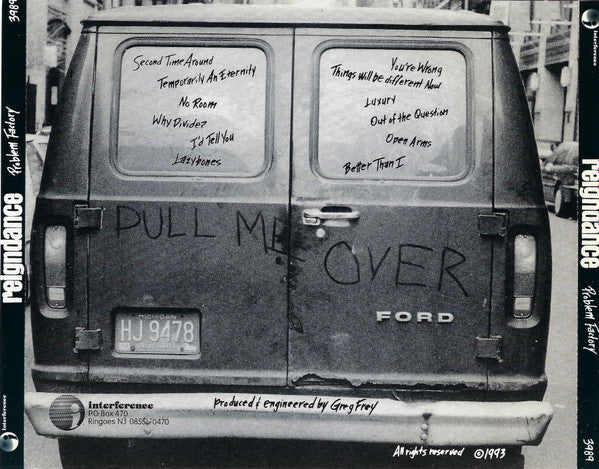 3989
Problem Factory
reigndance
interference
Second Time Around
Temporarily An Eternity
No Room
Why Divide?
I'd Tell You
Lazybones
You're Wrong
Things will be different Now
Luxury
Out of the Question
Open Arms
Better Than I
PULL ME OVER
FORD
MICHIGAN
HJ 9478
interference
PO Box 470
Ringoes NJ 08551-0470
produced & engineered by Greg Frey
All rights reserved ©1993
interference
reigndance
Problem Factory
3989